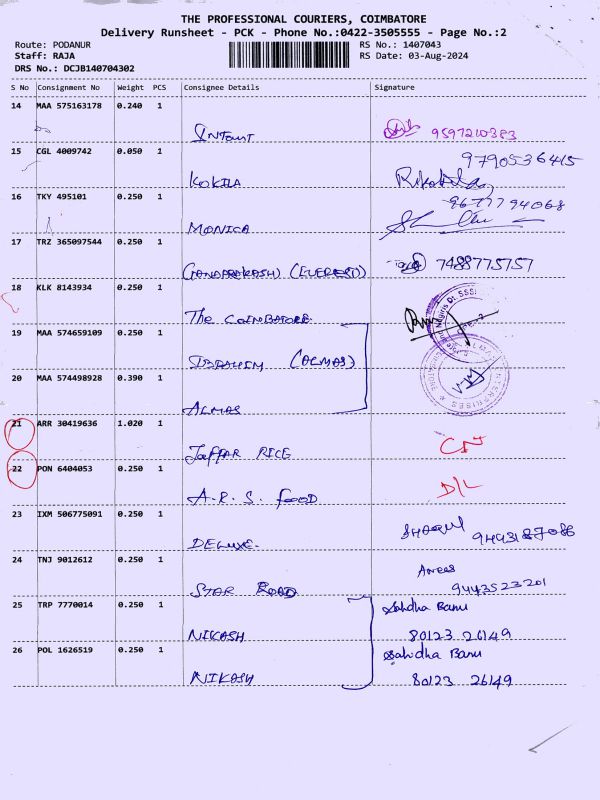 THE PROFESSIONAL COURIERS, COIMBATORE
Delivery Runsheet - PCK - Phone No.:0422-3505555 - Page No.:2
Route: PODANUR RS No.: 1407043
Staff: RAJA RS Date: 03-Aug-2024
DRS No.: DCJB140704302
S No Consignment No Weight PCS Consignee Details Signature
14 MAA 575163178 0.240 1
9597210383
15 CGL 4009742 0.050 1
9790536415
KOKILA
16 TKY 495101 0.250 1
9677794068
MONICA
17 TRZ 365097544 0.250 1
7488775757
18 KLK 8143934 0.250 1
The COIMBATORE
19 MAA 574659109 0.250 1
IBRAHIM (ALMAS)
20 MAA 574498928 0.390 1
ALMAS
21 ARR 30419636 1.020 1
JAFFAR RICE
22 PON 6404053 0.250 1
A.R.S. FOOD D/L
23 IXM 506775091 0.250 1
DELUXE
24 TNJ 9012612 0.250 1
Anees
STAR ROAD 9443523201
25 TRP 7770014 0.250 1
Sahidha Banu
NIKASH 80123 26149
26 POL 1626519 0.250 1
Sahidha Banu
NIKASH 80123 26149